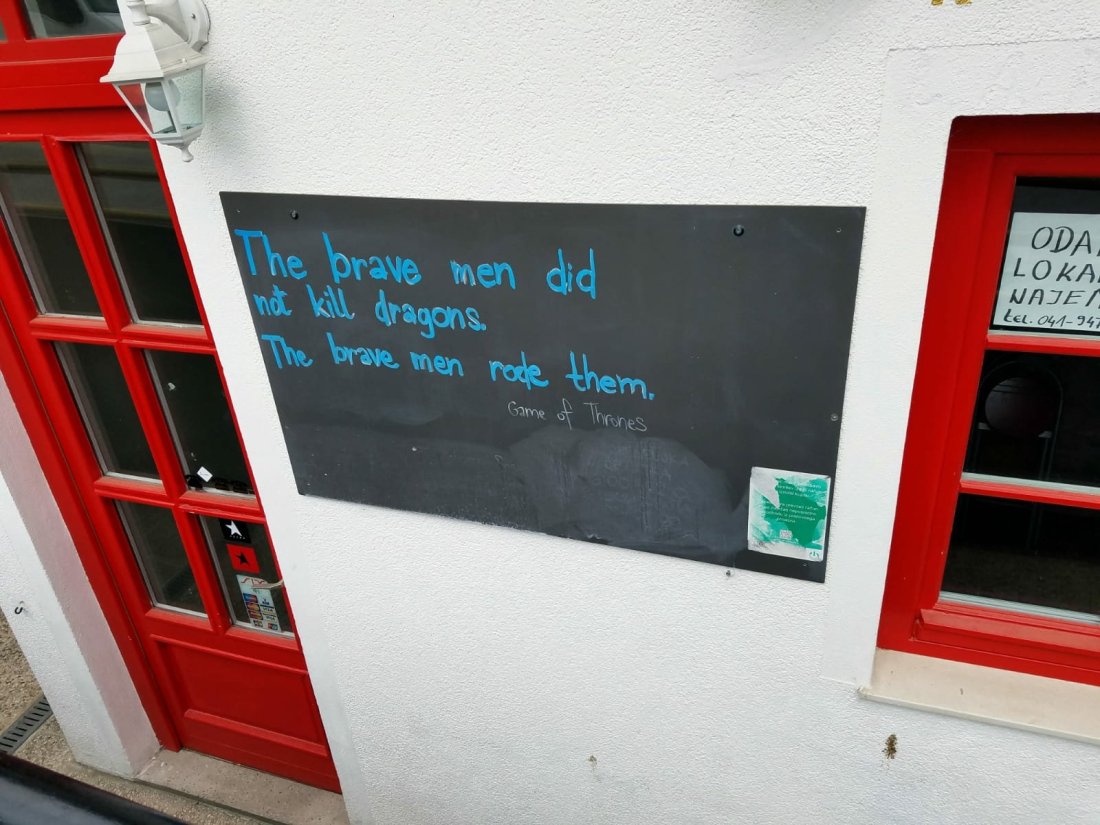 The brave men did
not kill dragons.
The brave men rode them.
Game of Thrones
tel. 041-947